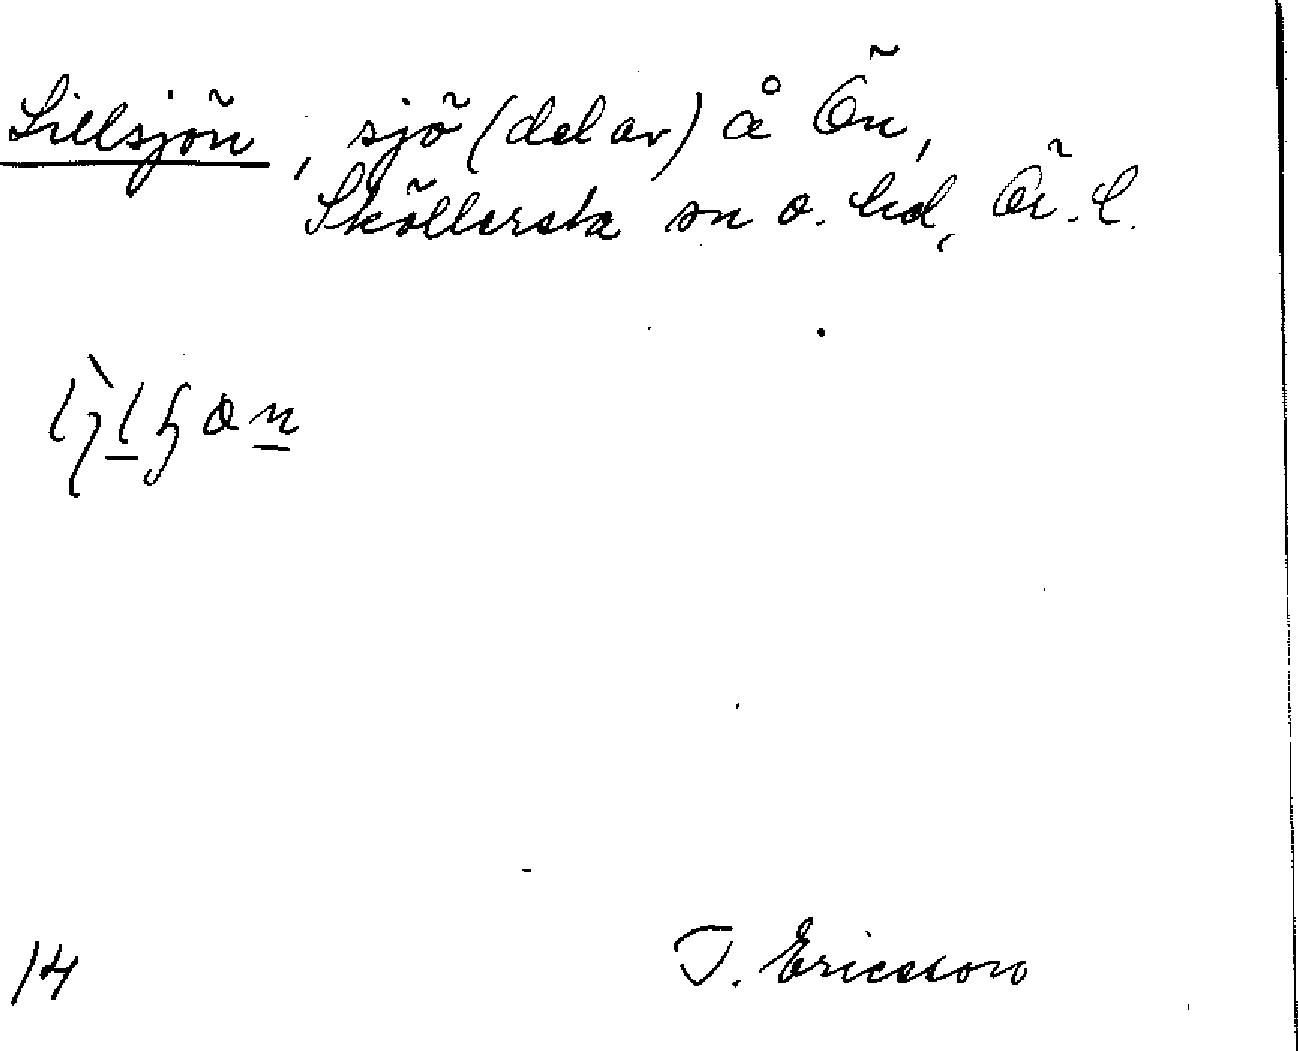 Lillsjön, sjö (del av) å Ön,
Sköllersta sn o. hd, Ör. l.
14
T. Ericsson